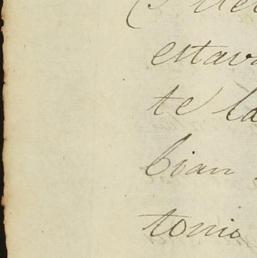 estav
te la
bian
tonio